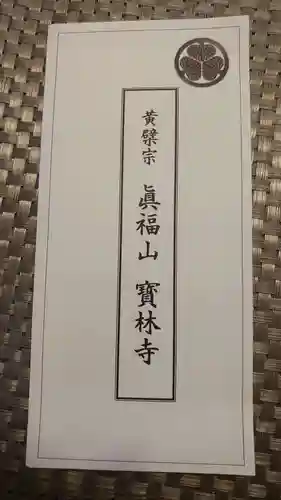 黄檗宗 眞福山 寶林寺